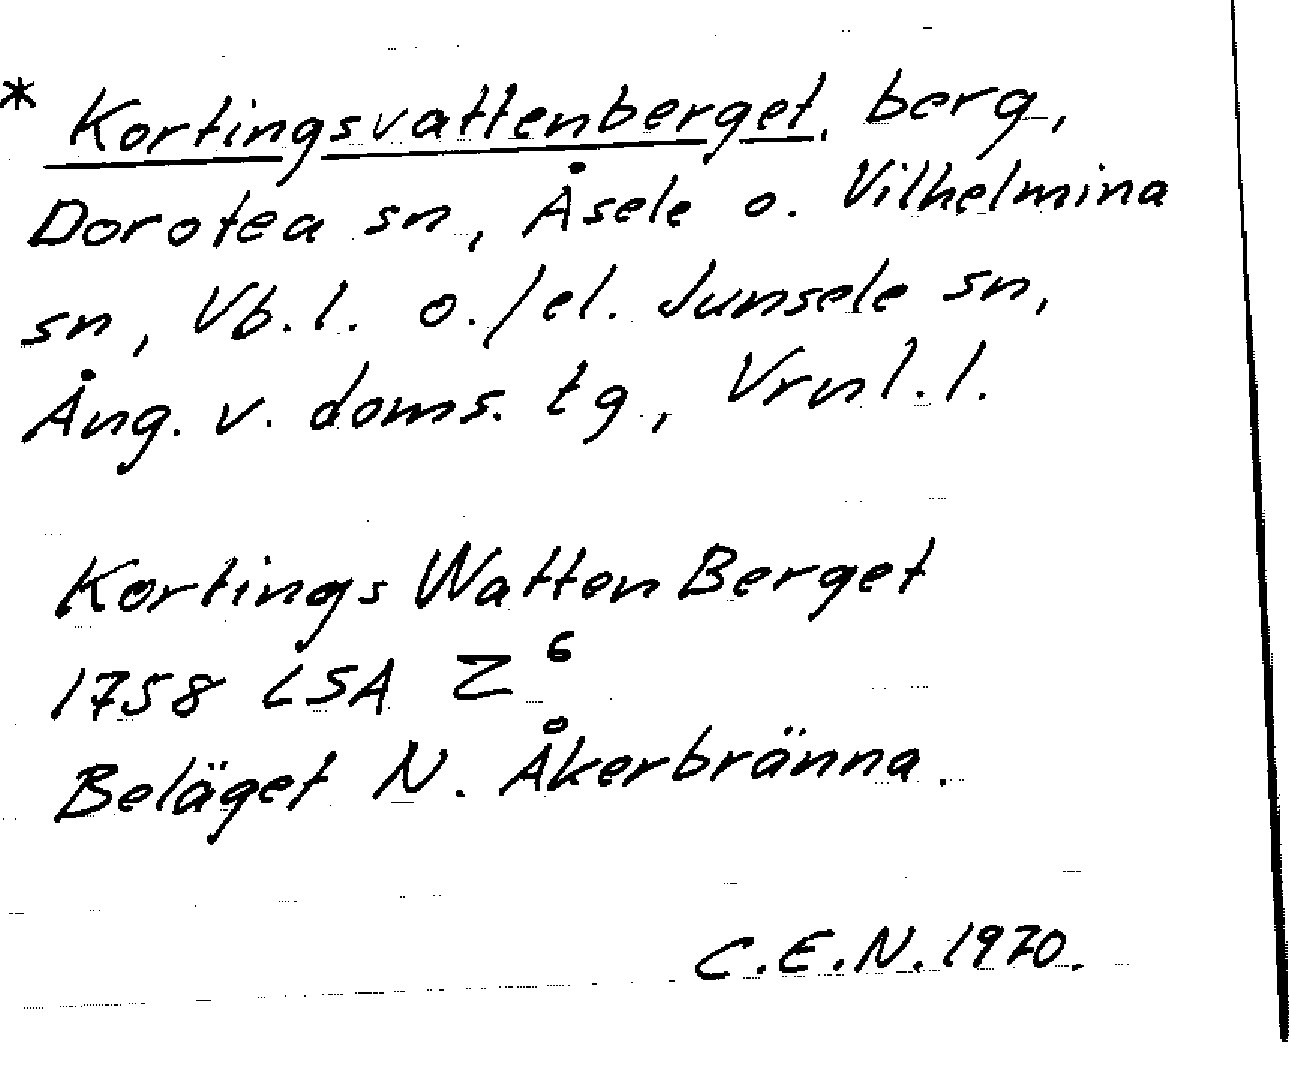 * Kortingsvattenberget, berg,
Dorotea sn, Åsele o. Vilhelmina
sn, Vb. l. o./el. Junsele sn,
Ång. v. doms. tg, Vrnl. l.
Kortings Watten Berget
1758 LSA Z⁶
Beläget N. Åkerbränna.
C.E.N. 1970.